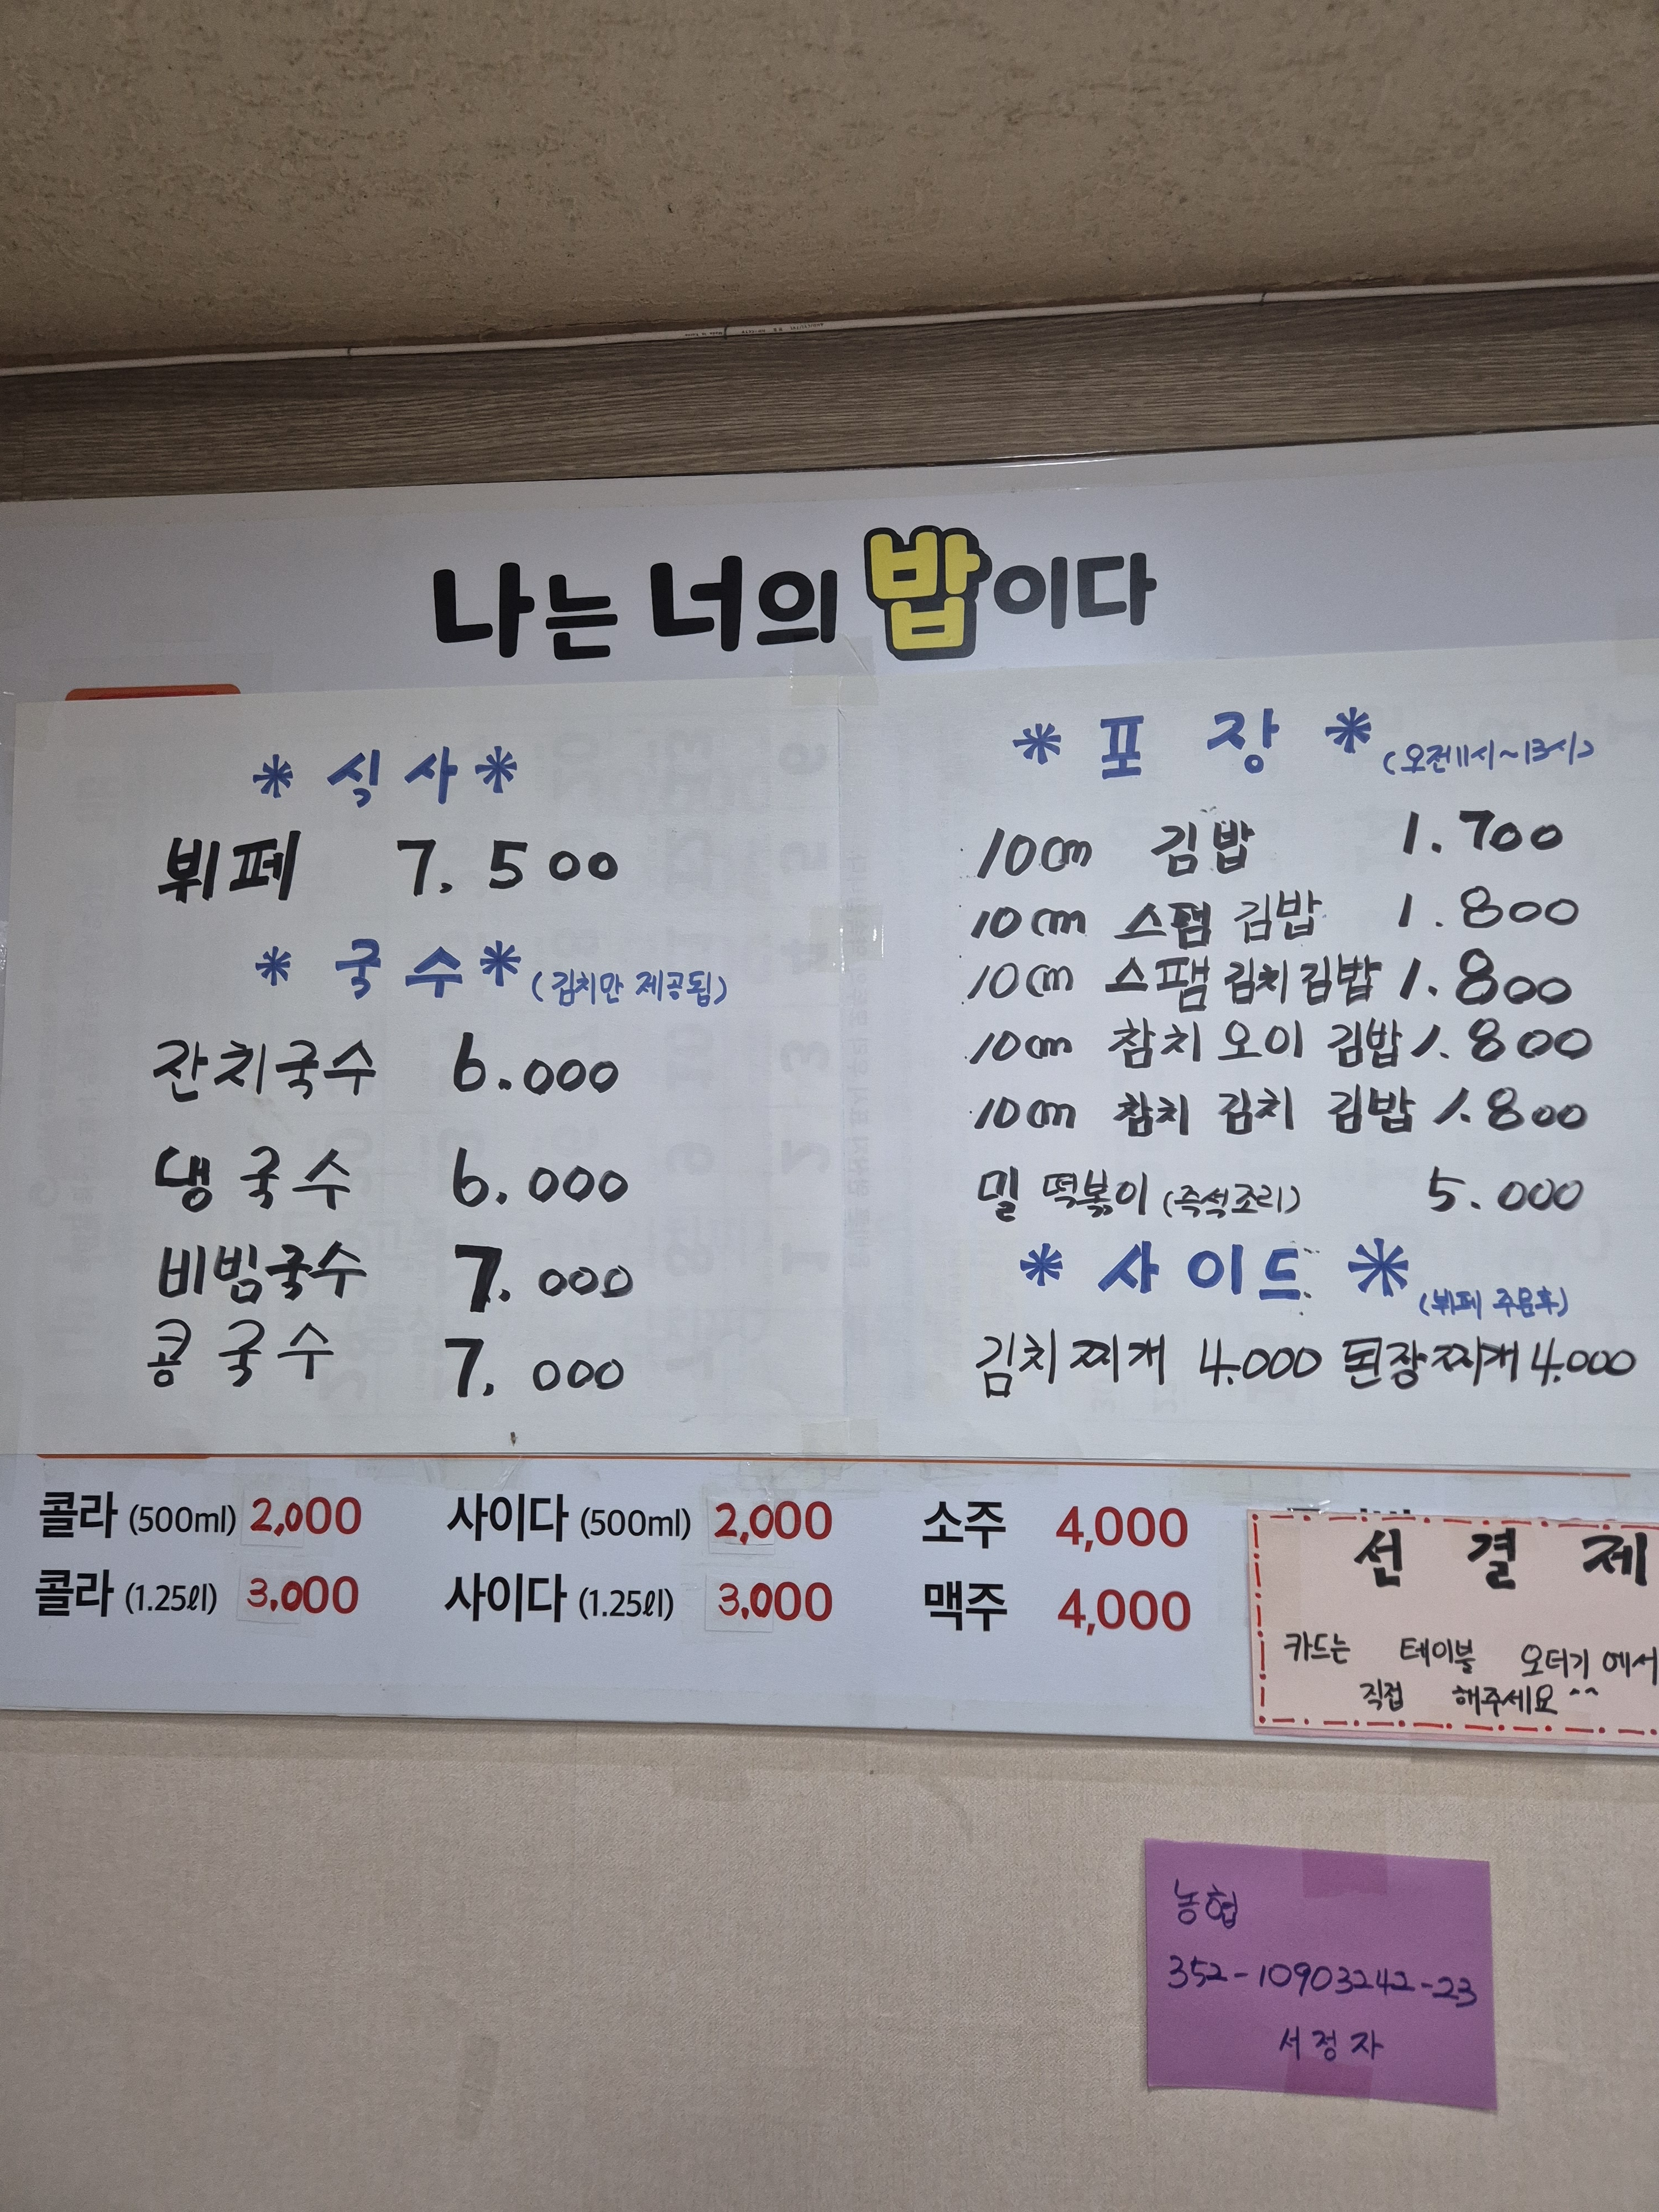 나는 너의 밥이다
* 식사 *
뷔페 7.500
* 국수 * (김치만 제공됩)
잔치국수 6.000
냉국수 6.000
비빔국수 7.000
콩국수 7.000
* 포장 * (오전11시~13시)
10cm 김밥 1.700
10cm 스팸 김밥 1.800
10cm 스팸 김치 김밥 1.800
10cm 참치 오이 김밥 1.800
10cm 참치 김치 김밥 1.800
밀 떡볶이 (즉석조리) 5.000
* 사이드 * (뷔페 주문후)
김치찌개 4.000 된장찌개 4.000
콜라 (500ml) 2,000 사이다 (500ml) 2,000 소주 4,000
콜라 (1.25ℓl) 3,000 사이다 (1.25ℓl) 3,000 맥주 4,000
선 결 제
카드는 테이블 오더기 에서
직접 해주세요 ^^
농협
352-10903242-23
서정자